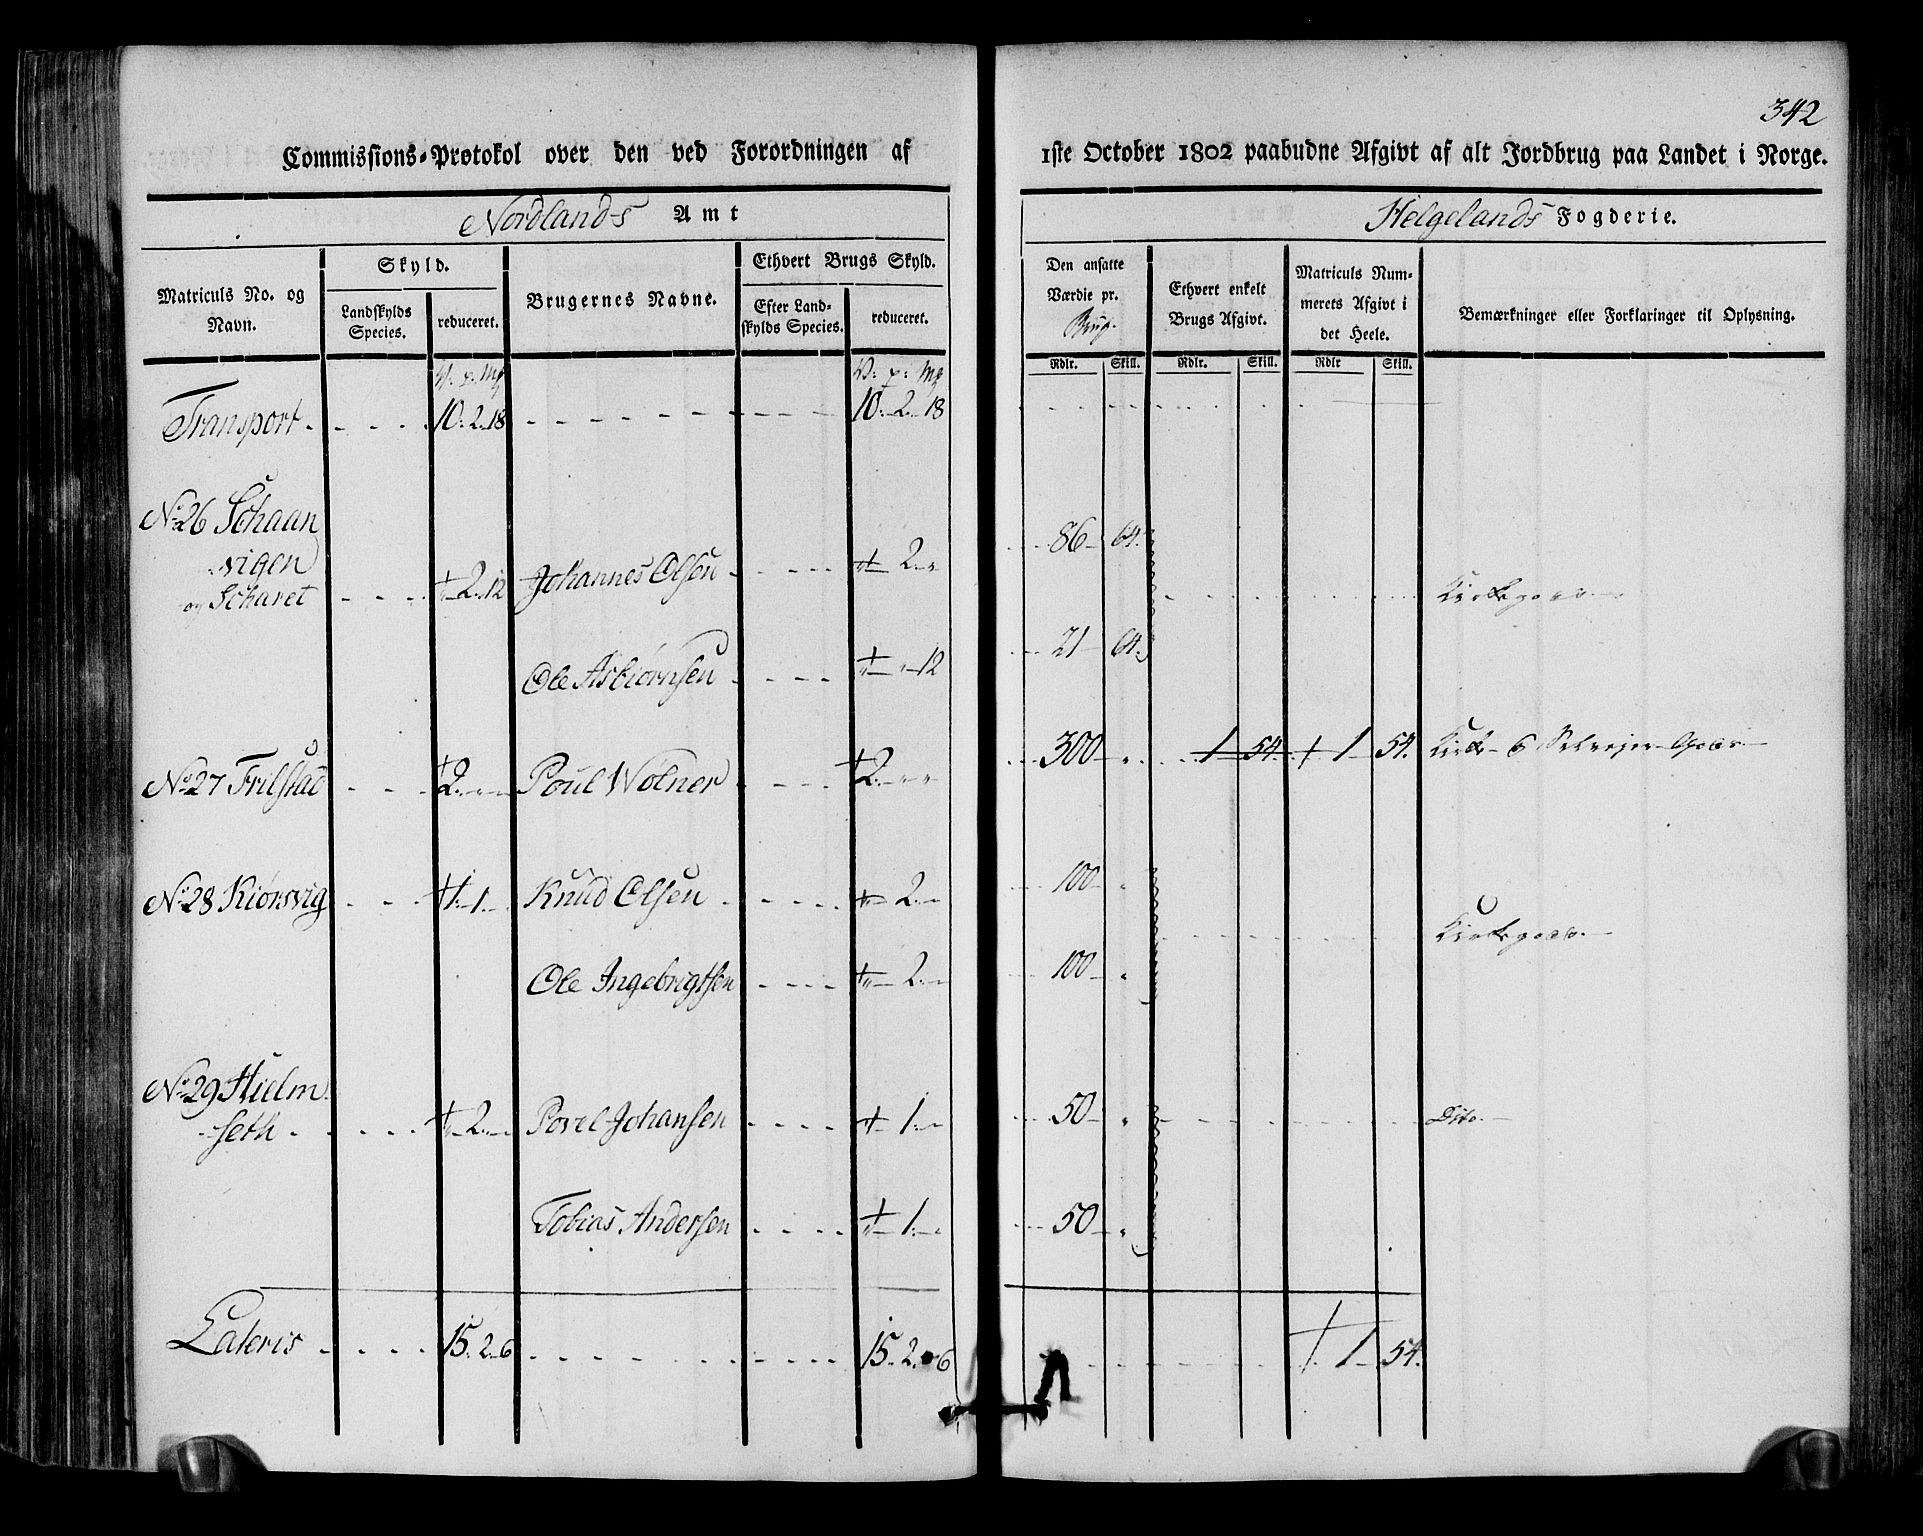 342
Commissions-Protokol over den ved Forordningen af 1ste October 1802 paabudne Afgivt af alt Jordbrug paa Landet i Norge.
Nordlands Amt
Helgelands Fogderie.
Matriculs No. og Navn.
Skyld.
Landskylds Species.
reduceret.
Brugernes Navne.
Ethvert Brugs Skyld.
Efter Landskylds Species.
reduceret.
Den ansatte Værdie pr. Brug.
Ethvert enkelt Brugs Afgivt.
Matriculs Nummerets Afgivt i det Heele.
Bemærkninger eller Forklaringer til Oplysning.
Rdlr. Skill. Rdlr. Skill. Rdlr Skill.
V: p: Mg V: p: Mg
Transport 10. 2. 18 10. 2. 18
No 26 Schaan
vigen 86 64.
og Scharet " 2. 12 Johannes Olsen " 2. " Kirkegods
Ole Asbiørnsen " " 12 21 64.
No 27 Frilstad 2. " " Poul Wolner 2. " " 300 " 1 54. 1 54.
No 28 Kiørsvig 1. 1. " Knud Olsen " 2. " 100 " Kirkegods
Ole Ingebrigtsen " 2. " 100 "
No 29 Hielm
seth " 2. " Povel Johansen " 1. " 50 " Dito.
Tobias Andersen " 1. " 50 "
Lateris 15. 2. 6 15. 2. 6 1 54.